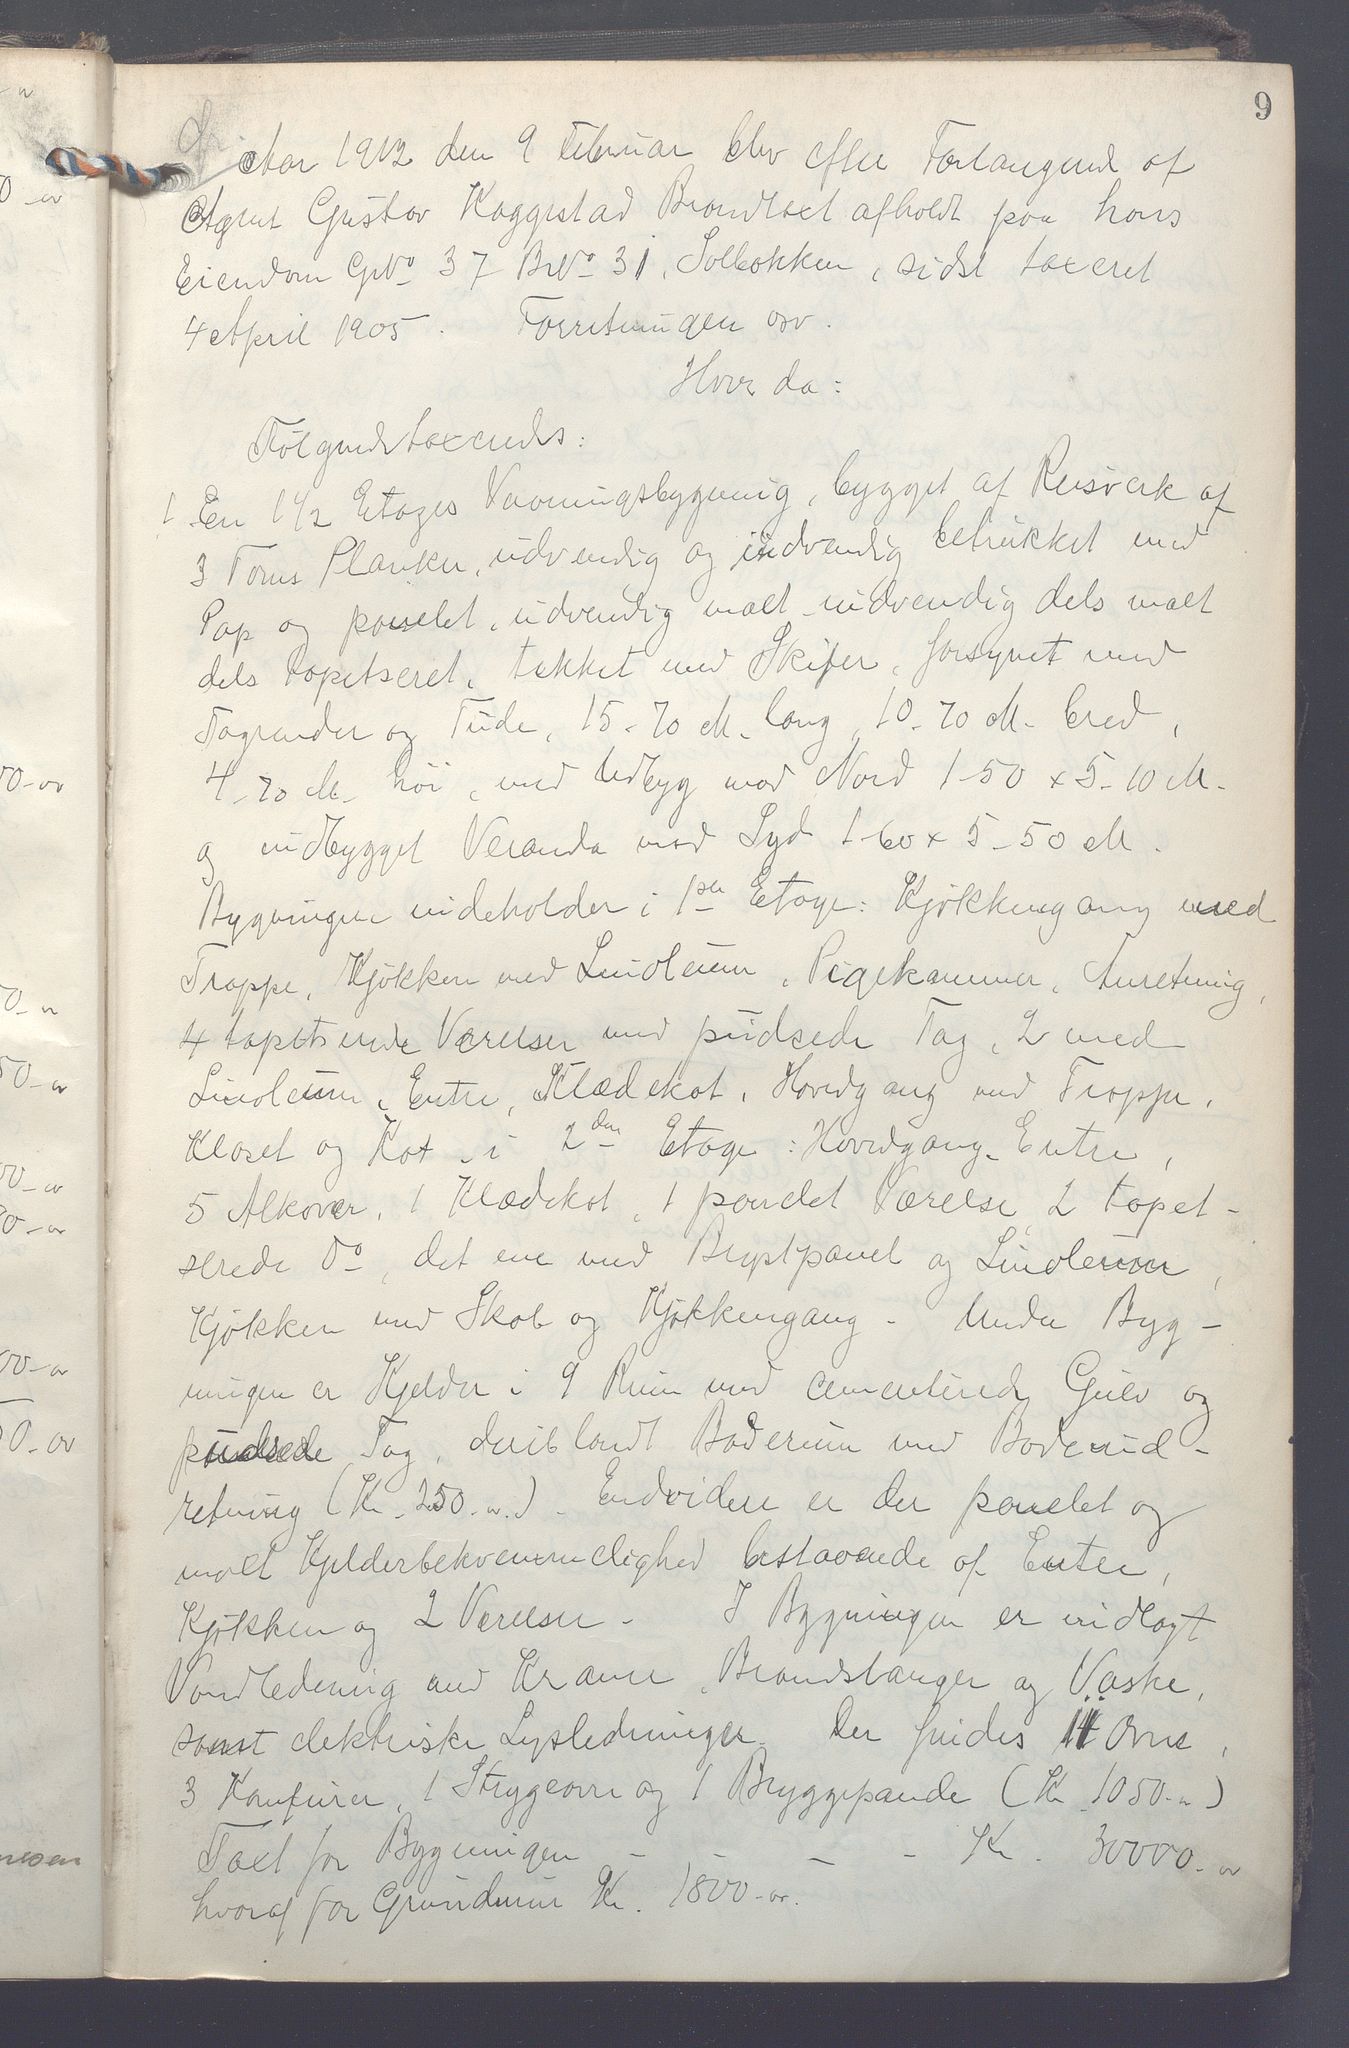 9
Aar 1912 den 9 Februar blev efter Forlangende af
Agent Gustav Kaggestad Brandtaxt afholdt paa hans
Eiendom GNo 37 BrNo 31, Solbakken, sidst taxeret
4 April 1905. Forretningen osv.
Hvor da:
Følgende taxeredes:
1 En 1 1/2 Etages Vaaningsbygning, bygget af Reisverk af
3 Toms Planker, udvendig og indvendig betrukket med
Pap og panelet, udvendig malt, indvendig dels malt
dels tapetseret, tækket med Skifer, forsynet med
Tagrender og Tude, 15-70 M. lang, 10-70 M. bred,
4-70 M. høi, med Udbyg mod Nord 1-50 x 5-10 M.
og indbygget Veranda mod Syd 1-60 x 5-50 M.
Bygningen indeholder i 1ste Etage: Kjøkkengang med
Trappe, Kjøkken med Linoleum, Pigekammer, Anretning,
4 tapetserede Værelser med pudsede Tag, 2 med
Linoleum, Entre, Klædekot, Hovedgang med Trappe,
Kloset og Kot, i 2den Etage: Hovedgang, Entre,
5 Alkover, 1 Klædekot, 1 panelet Værelse, 2 tapet-
serede Do, det ene med Brystpanel og Linoleum,
Kjøkken med Skab og Kjøkkengang - Under Byg-
ningen er Kjelder i 9 Rum med cementerede Gulv og
pudsede Tag, deriblandt Baderum med Badeind-
retning (Kr. 250.-) - Endvidere er der panelet og
malt Kjelderbekvemmelighed bestaaende af Entre,
Kjøkken og 2 Værelser - I Bygningen er indlagt
Vandledning med Kraner, Brandslanger og Vaske,
samt elektriske Lysledninger. Der findes 14 Ovne,
3 Komfurer, 1 Strygeovn og 1 Bryggepande (Kr. 1050.-)
Taxt for Bygningen - - - - Kr. 30000.-
hvoraf for Grundmur Kr. 1800.-